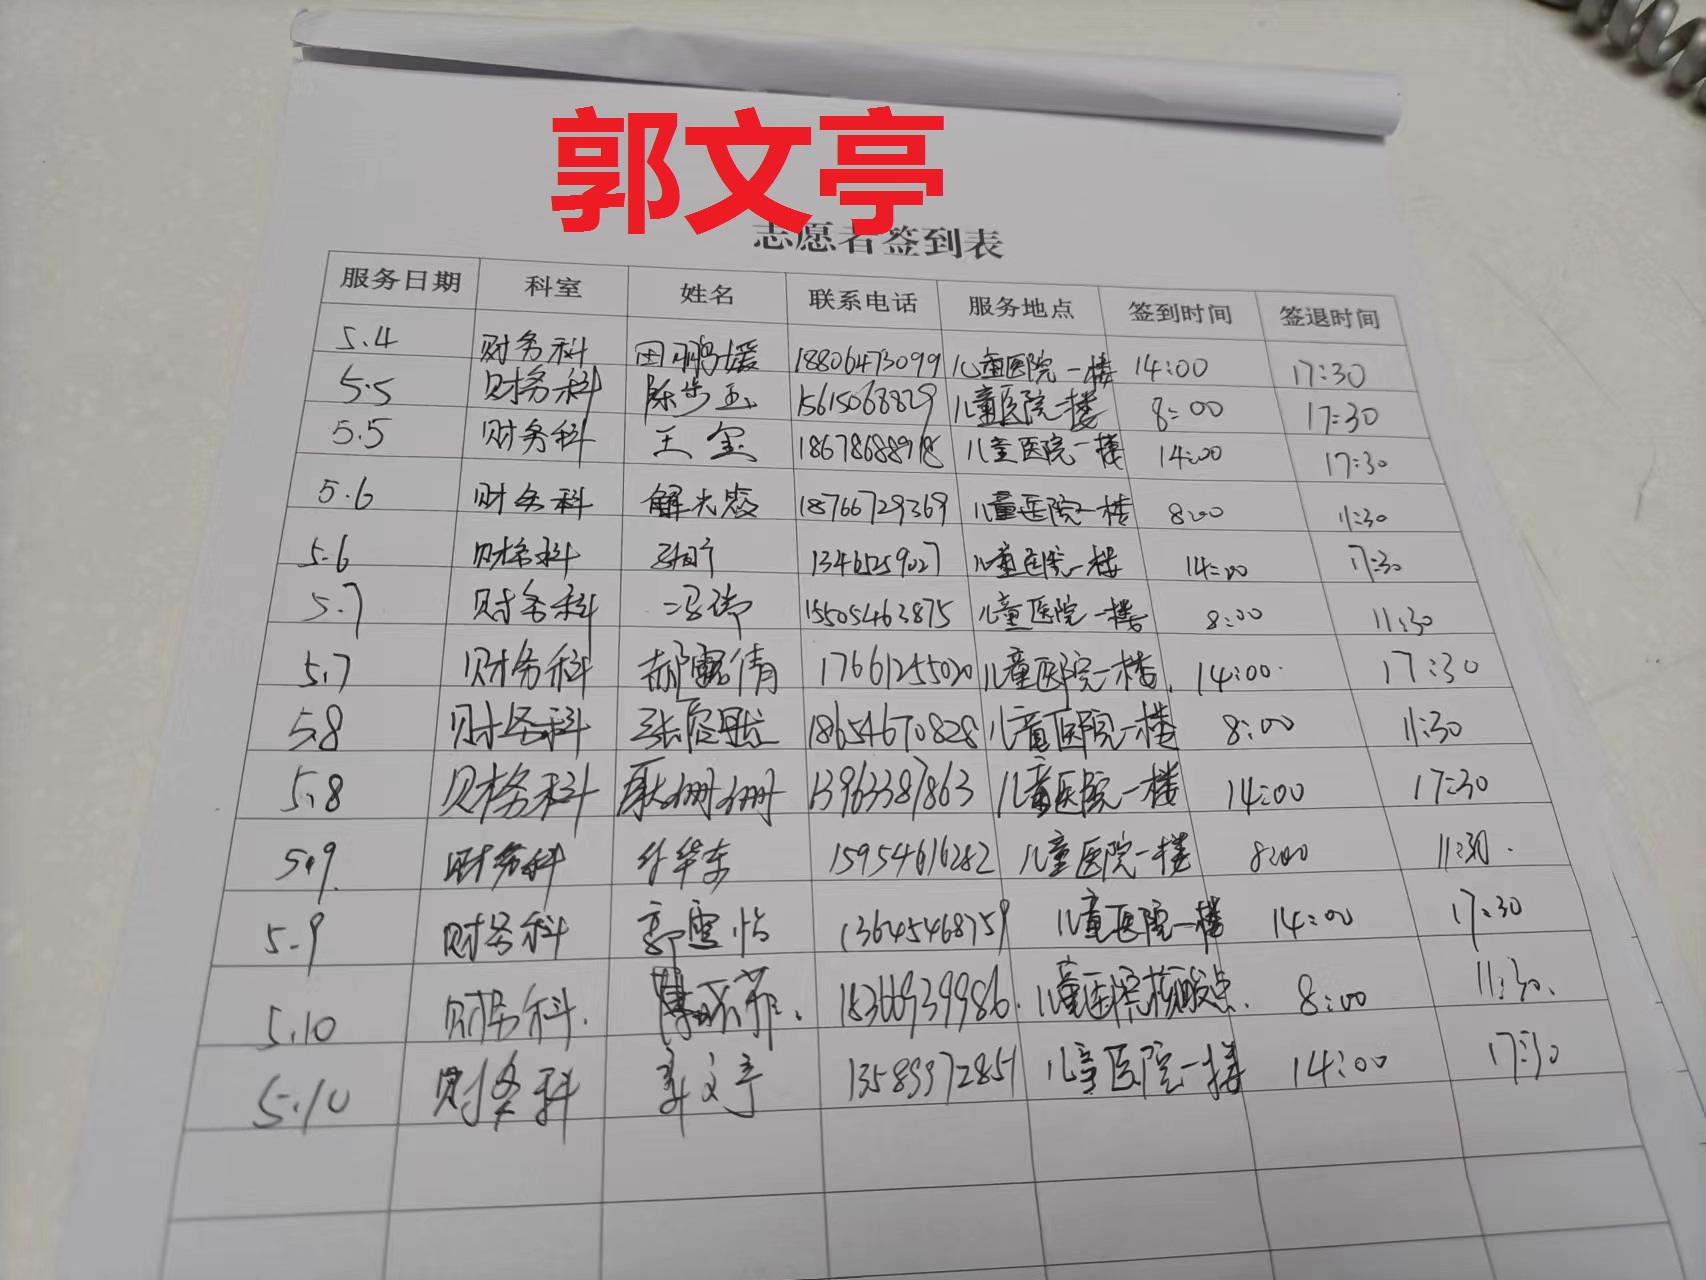 郭文亭
志愿者签到表
服务日期 科室 姓名 联系电话 服务地点 签到时间 签退时间
5.4 财务科 田鹏媛 18806473099 儿童医院一楼 14:00 17:30
5.5 财务科 陈步玉 15615068829 儿童医院一楼 8:00 17:30
5.5 财务科 王宝 18678688918 儿童医院一楼 14:00 17:30
5.6 财务科 18766729369 儿童医院一楼 8:00 11:30
5.6 财务科 13461259027 儿童医院一楼 14:00 17:30
5.7 财务科 冯衛 15505463875 儿童医院一楼 8:00 11:30
5.7 财务科 郝露倩 17661255020 儿童医院一楼 14:00 17:30
5.8 财务科 18654670828 儿童医院一楼 8:00 11:30
5.8 财务科 耿姗姗 13963387863 儿童医院一楼 14:00 17:30
5.9 财务科 15954616282 儿童医院一楼 8:00 11:30
5.9 财务科 郭雪怡 13645468759 儿童医院一楼 14:00 17:30
5.10 财务科 18366939986 儿童医院核酸点 8:00 11:30
5.10 财务科 郭文亭 13589972851 儿童医院一楼 14:00 17:30